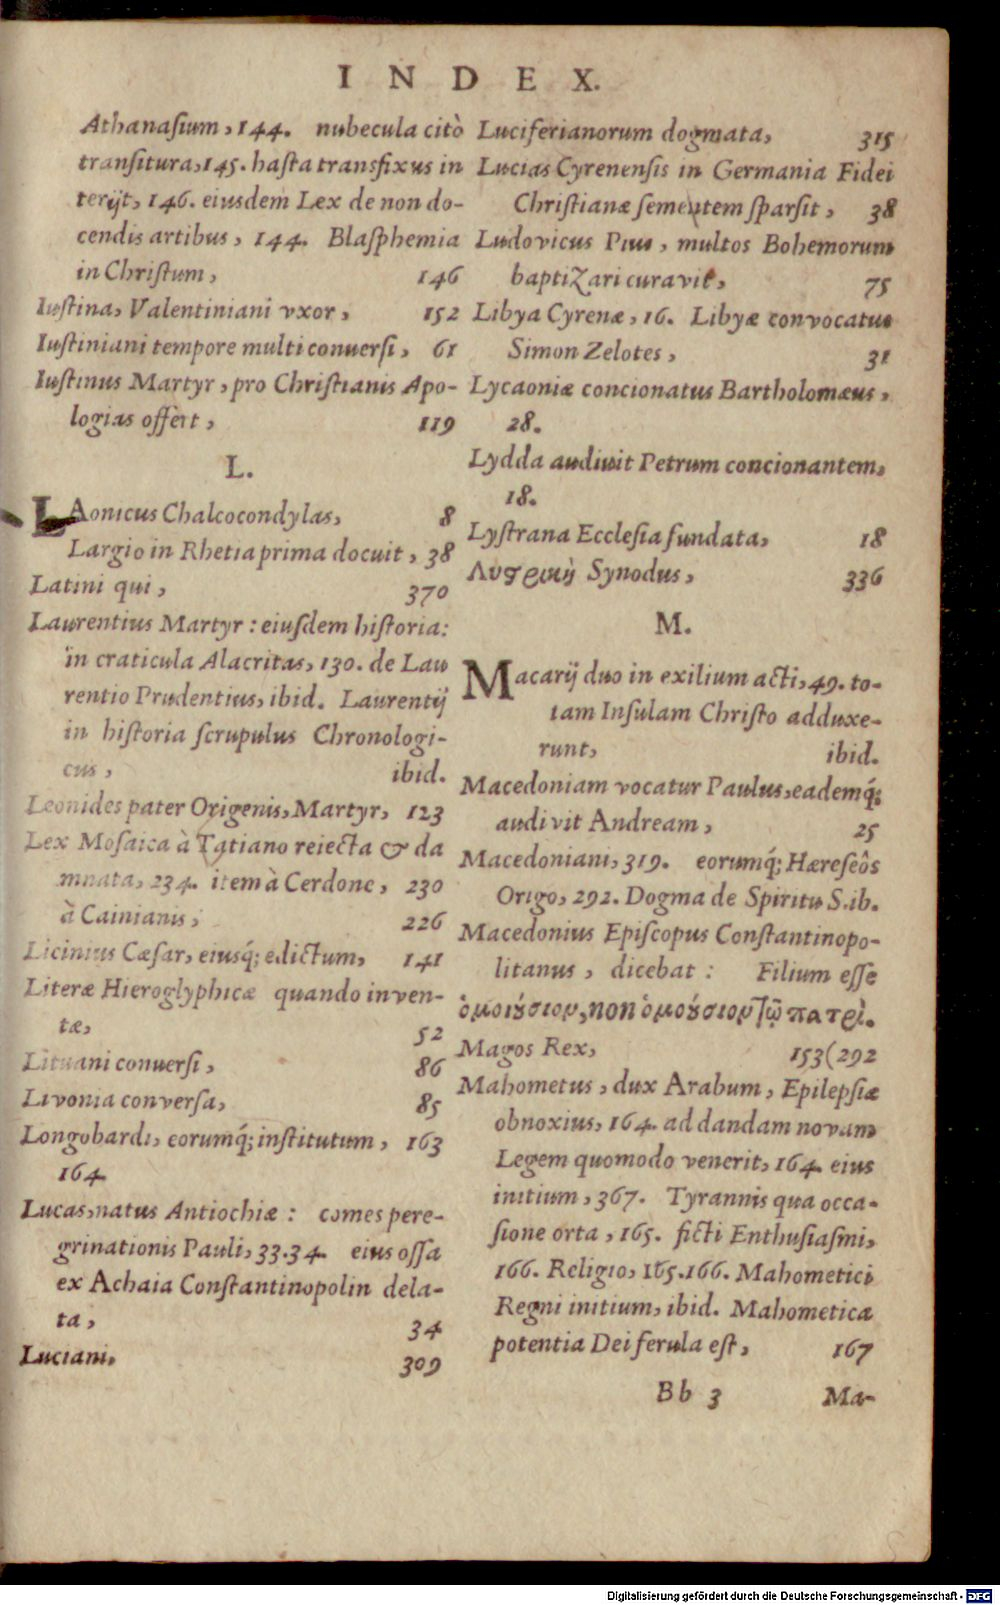 INDEX.
Athanasium, 144. nubecula citò
transitura, 145. hasta transfixus in
terijt, 146. eiusdem Lex de non do-
cendis artibus, 144. Blasphemia
in Christum, 146
Iustina, Valentiniani vxor, 152
Iustiniani tempore multi conuersi, 61
Iustinus Martyr, pro Christianis Apo-
logias offert, 119
L.
LAonicus Chalcocondylas, 8
Largio in Rhetia prima docuit, 38
Latini qui, 370
Laurentius Martyr: eiusdem historia:
in craticula Alacritas, 130. de Lau
rentio Prudentius, ibid. Laurentij
in historia scrupulus Chronologi-
cus, ibid.
Leonides pater Origenis, Martyr, 123
Lex Mosaica à Tatiano reiecta & da
mnata, 234. item à Cerdone, 230
à Cainianis, 226
Licinius Cæsar, eiusq́; edictum, 141
Literæ Hieroglyphicæ quando inven-
tæ, 52
Lituani conuersi, 86
Livonia conversa, 85
Longobardi, eorumq́; institutum, 163
164
Lucas, natus Antiochiæ: comes pere-
grinationis Pauli, 33.34. eius ossa
ex Achaia Constantinopolin dela-
ta, 34
Luciani, 309
Luciferianorum dogmata, 315
Lucias Cyrenensis in Germania Fidei
Christianæ sementem sparsit, 38
Ludovicus Pius, multos Bohemorum
baptizari curavit, 75
Libya Cyrenæ, 16. Libyæ convocatus
Simon Zelotes, 31
Lycaoniæ concionatus Bartholomæus,
28.
Lydda audiuit Petrum concionantem,
18.
Lystrana Ecclesia fundata, 18
Λυστρικὴ Synodus, 336
M.
Macarij duo in exilium acti, 49. to-
tam Insulam Christo adduxe-
runt, ibid.
Macedoniam vocatur Paulus, eademq́;
audivit Andream, 25
Macedoniani, 319. eorumq́; Hæreseôs
Origo, 292. Dogma de Spiritu S. ib.
Macedonius Episcopus Constantinopo-
litanus, dicebat: Filium esse
ὁμοιούσιον, non ὁμοούσιον τῷ πατρὶ.
Magos Rex, 153 (292
Mahometus, dux Arabum, Epilepsiæ
obnoxius, 164. ad dandam novam
Legem quomodo venerit, 164. eius
initium, 367. Tyrannis qua occa-
sione orta, 165. ficti Enthusiasmi,
166. Religio, 165.166. Mahometici
Regni initium, ibid. Mahometica
potentia Dei ferula est, 167
Bb 3 Ma-
Digitalisierung gefördert durch die Deutsche Forschungsgemeinschaft - DFG